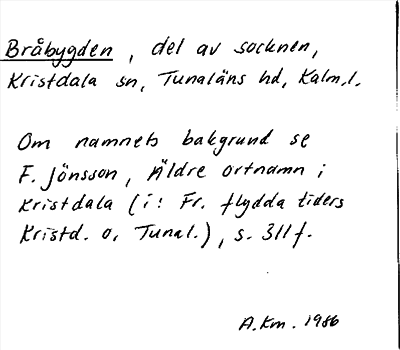 Bråbygden, del av socknen,
Kristdala sn, Tunaläns hd, Kalm.l.
Om namnets bakgrund se
F. Jönsson, Äldre ortnamn i
Kristdala (i: Fr. flydda tiders
Kristd. o. Tunal.), s. 311 f.
A.Km. 1986